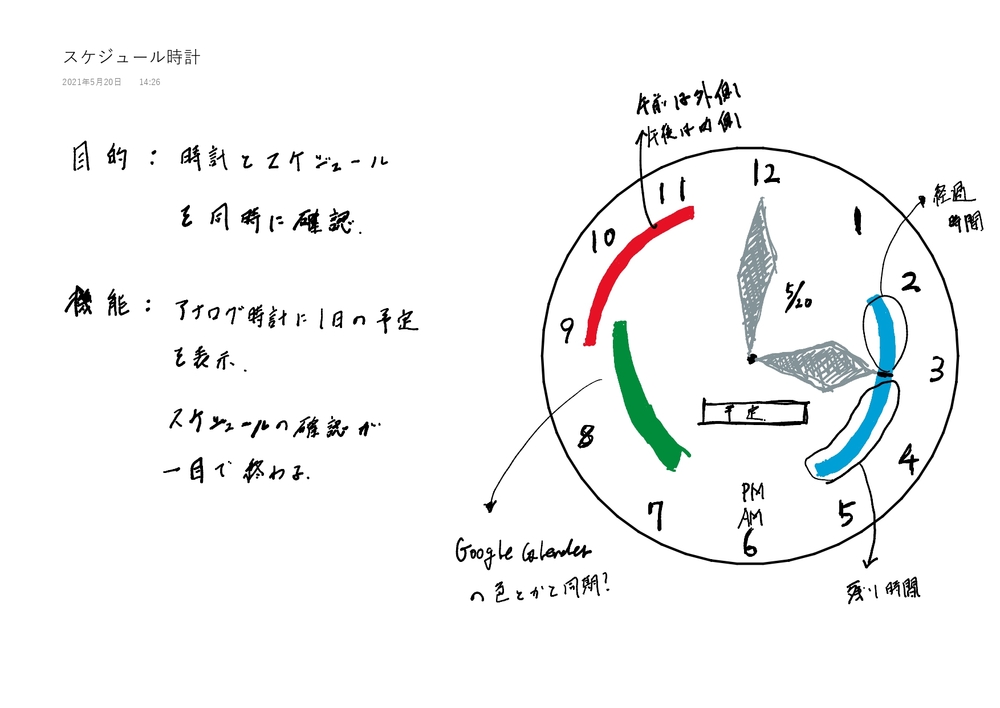 スケジュール時計
2021年5月20日 14:26
目的：時計とスケジュール
を同時に確認.
機能：アナログ時計に1日の予定
を表示.
スケジュールの確認が
一目で終わる.
午前は外側
午後は内側
12
11
1
10
2
9
3
8
4
7
5
6
5/20
予定
PM
AM
経過
時間
残り時間
Google Calender
の色とかと同期?